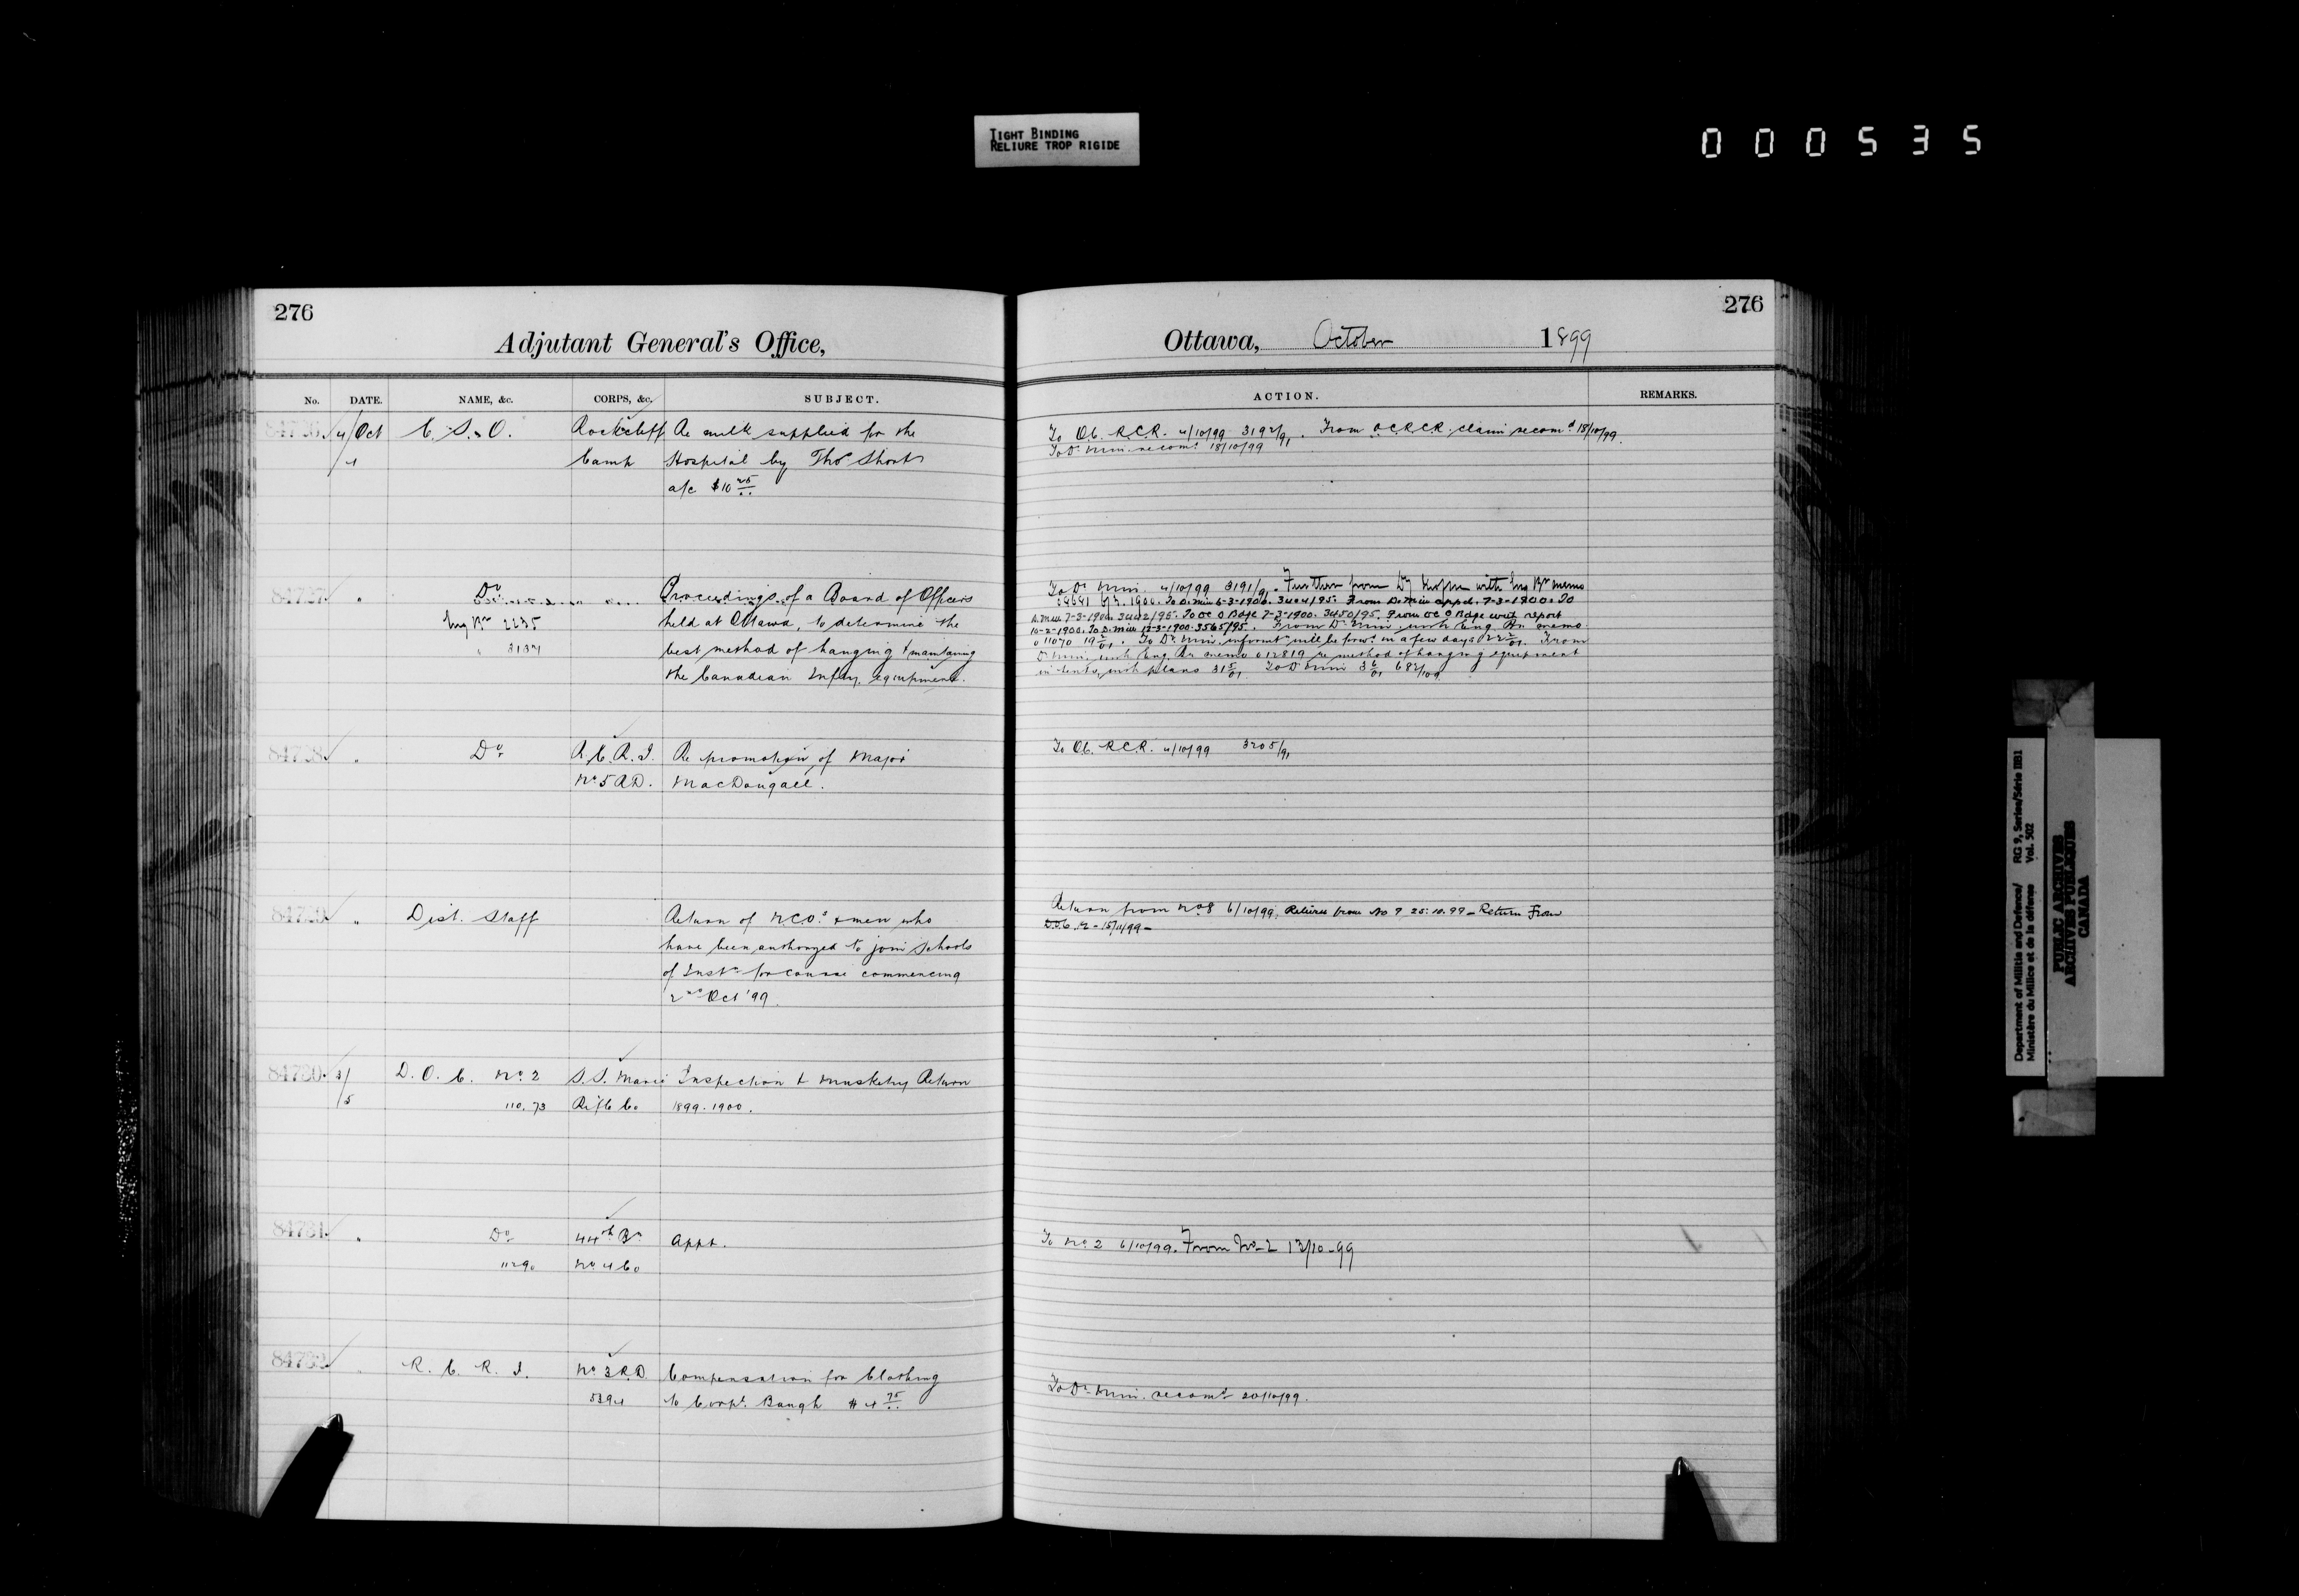 TIGHT BINDING
RELIURE TROP RIGIDE
000535
276
Adjutant General's Office,
No. DATE. NAME, &c. CORPS, &c. SUBJECT.
84726. 4/Oct C. S. O. Rockcliff Re milk supplied for the
/4 Camp Hospital by Thos Short
a/c $10 25
84727. " Do Proceedings of a Board of Officers
Eng Br 2235 held at Ottawa, to determine the
" 3134 best method of hanging &
the Canadian Infy. equipment.
84728. " Do R.C.R.I. Re promotion of Major
No 5 R.D. MacDougall.
84729. " Dist. Staff Return of NCOs & men who
have been authorized to join Schools
of Instn for course commencing
2nd Oct '99.
84730. 3/ D. O. C. No 2 S.S. Marie Inspection & Musketry Return
/5 110.73 Rifle Co 1899.1900.
84731. " Do 44th Bn Appt.
1290 No 4 Co
84732. " R. C. R. I. No 3 R.D. Compensation for Clothing
5394 to Corpl. Baugh $4 75
276
Ottawa, October 1899
ACTION. REMARKS.
To OC. R.C.R. 4/10/99 3192/91. From O.C.R.C.R. claim recomd 18/10/99.
To Dr. Min. recomd 18/10/99
To Dr. Min. 4/10/99 3191/91. Further from Dy with Eng Br memo
To D. Min 6-3-1900. 3404/95. From D. Min appd. 7-3-1900. To
D. Min 7-3-1900. 3442/95. To OC O Bdge 7-3-1900. 3450/95. From OC O Bdge with report
10-2-1900. To D. Min 12-3-1900. 3565/95. From Dr. Min with Eng. Br memo
011070 To Dr. Min. informt will be forwd in a few days From
Dr. Min. with Eng. Br memo 012819 re method of hanging equipment
in tents, with plans 31 5/01. To Dr. Min 3 6/01 682/109
To OC. R.C.R. 4/10/99 3205/91
Return from No 8 6/10/99. Return from No 9 25.10.99 - Return From
D.O.C. 12 - 15/11/99 -
To No 2 6/10/99. From No-2 13/10-99
To Dr. Min. recomd 20/10/99.
Department of Militia and Defence/ RG 9, Series/Série IIB1
Ministère du Milice et de la défense Vol. 502
PUBLIC ARCHIVES
ARCHIVES PUBLIQUES
CANADA